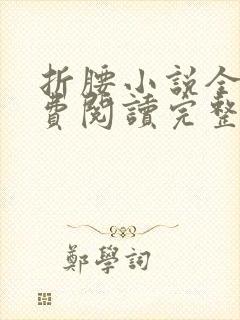 折腰小説全
費閱讀完整
鄭學詞